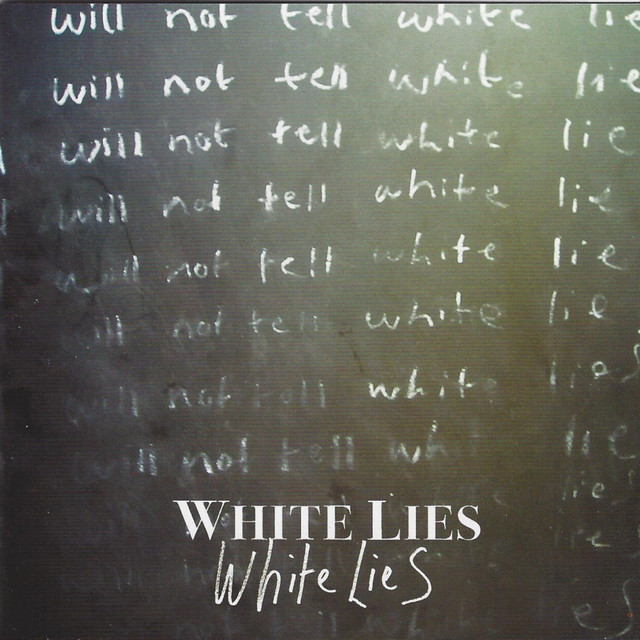 will not tell white lie
will not tell white lie
will not tell white lie
will not tell white lie
will not tell white lie
will not tell white lie
will not tell white lies
will not tell whi lie
lie
WHITE LIES
White Lies
lie
lies